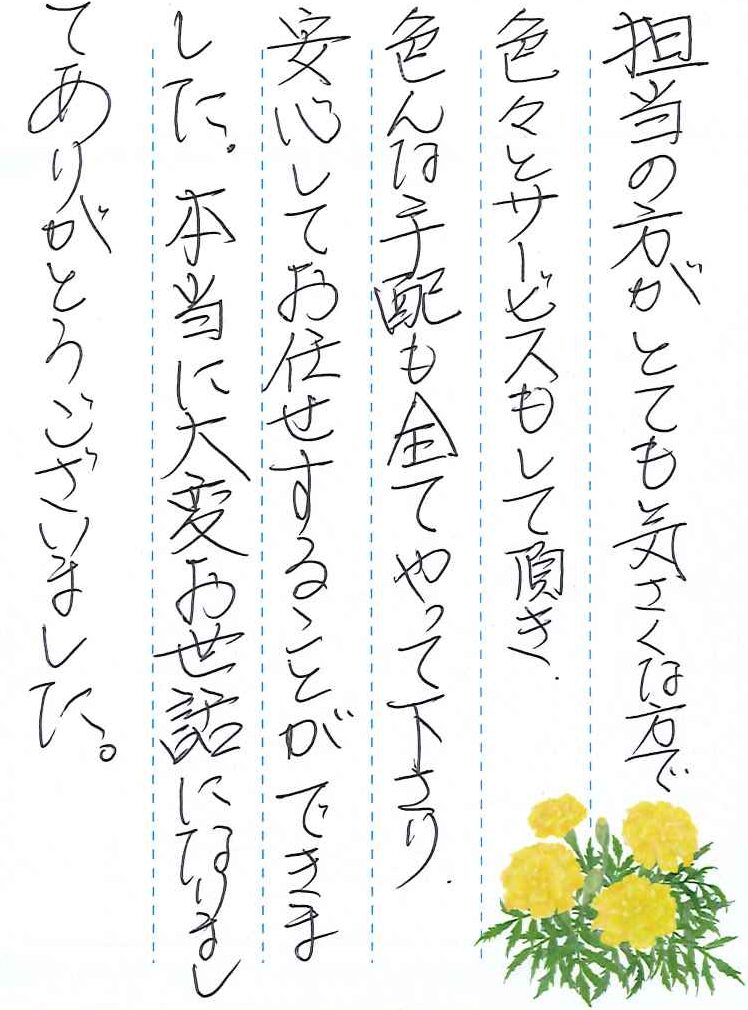 担当の方がとても気さくな方で
色々とサービスもして頂き、
色んな手配も全てやって下さり、
安心してお任せすることができま
した。本当に大変お世話になりまし
てありがとうございました。